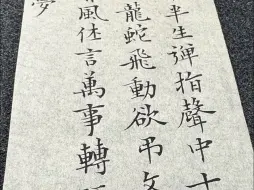 半生彈指聲中十
龍蛇飛動欲弔文
風休言萬事轉
夢